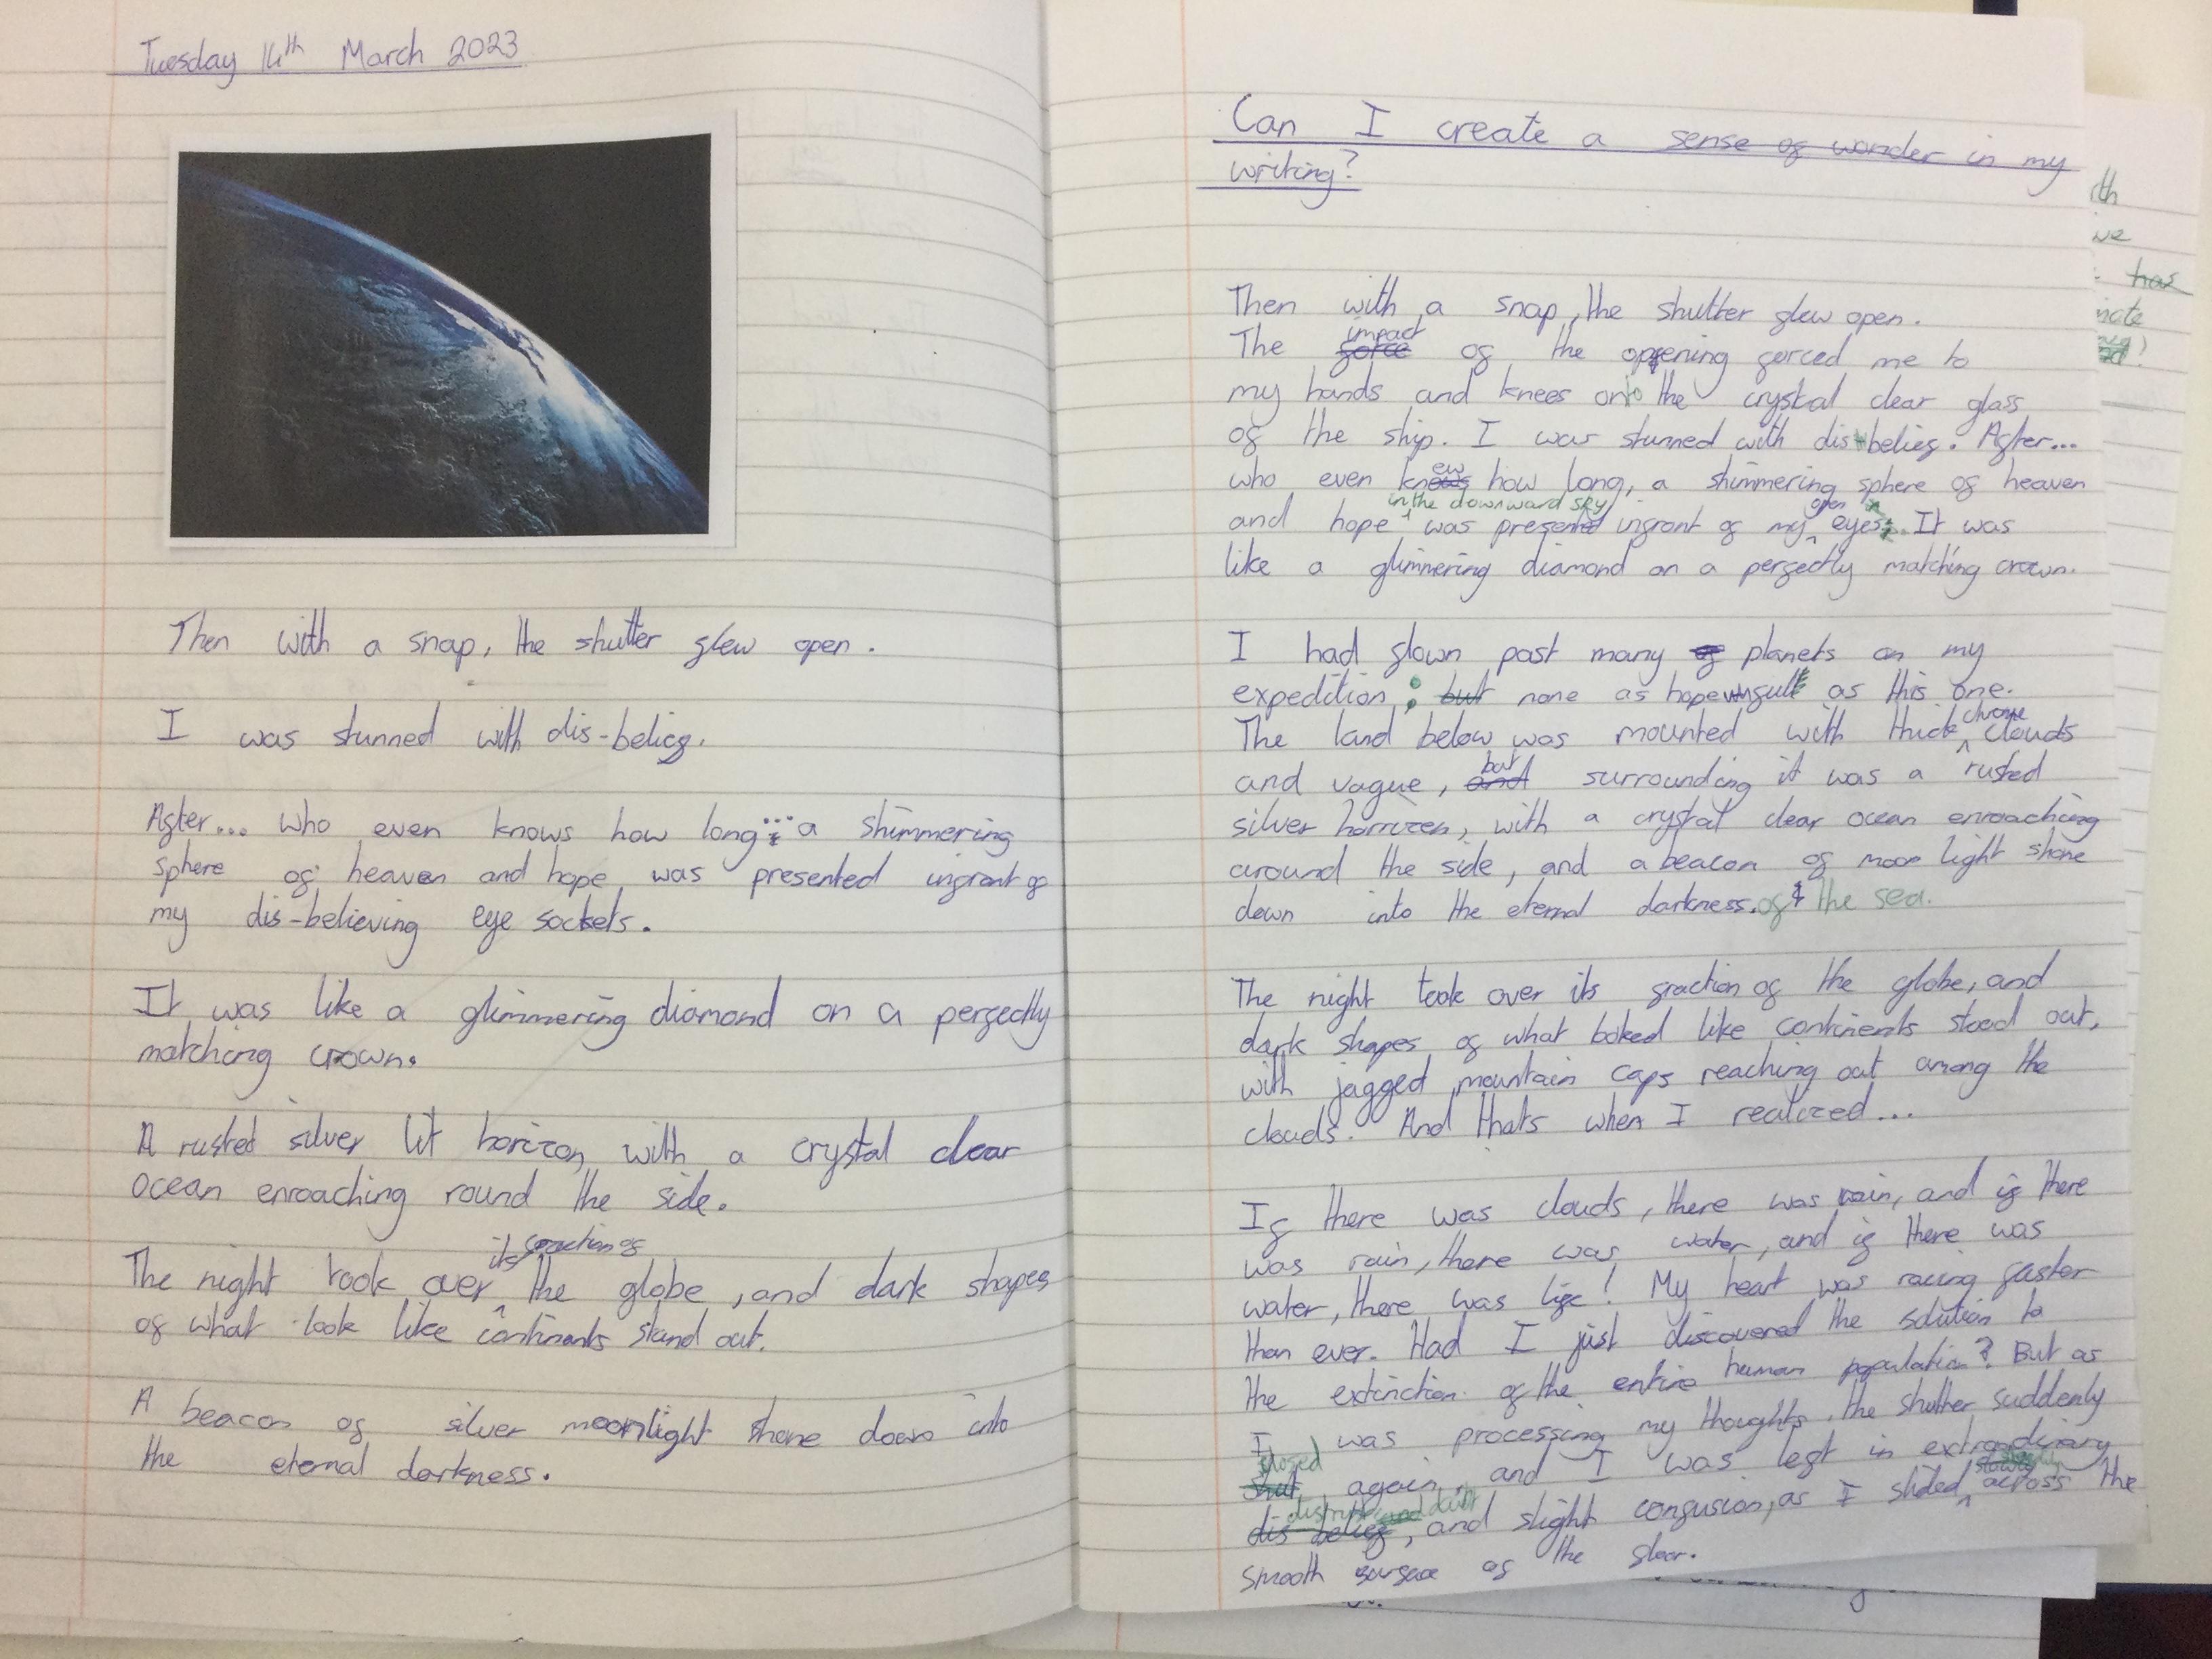 Tuesday 14th March 2023
Then with a snap, the shutter flew open.
I was stunned with dis-belief.
After... who even knows how long... a shimmering
sphere of heaven and hope was presented infront of
my dis-believing eye sockets.
It was like a glimmering diamond on a perfectly
matching crown.
A rusted silver lit horizon, with a crystal clear
ocean enroaching round the side.
The night took over its fraction of the globe, and dark shapes
of what look like continants stand out.
A beacon of silver moonlight shone down into
the eternal darkness.
Can I create a sense of wonder in my
writing?
Then with a snap, the shutter flew open.
The force impact of the opening forced me to
my hands and knees onto the crystal clear glass
of the ship. I was stunned with disbelief. After...
who even knew how long, a shimmering sphere of heaven
and hope in the downward sky was present infront of my open eyes. It was
like a glimmering diamond on a perfectly matching crown.
I had flown past many of planets on my
expedition; but none as hopefull as this one.
The land below was mounted with thick chrome clouds
and vague, and but surrounding it was a rusted
silver horrizen, with a crystal clear ocean enroaching
around the side, and a beacon of moon light shone
down into the eternal darkness of the sea.
The night took over its fraction of the globe, and
dark shapes of what looked like continents stood out,
with jagged mountain caps reaching out among the
clouds. And thats when I realized...
If there was clouds, there was rain, and if there
was rain, there was water, and if there was
water, there was life! My heart was racing faster
than ever. Had I just discovered the solution to
the extinction of the entire human population? But as
I was processing my thoughts, the shutter suddenly
shut closed again, and I was left in extraordinary
dis belief distrust and, and slight confusion, as I slided slowly across the
smooth surface of the floor.
rth
we
has